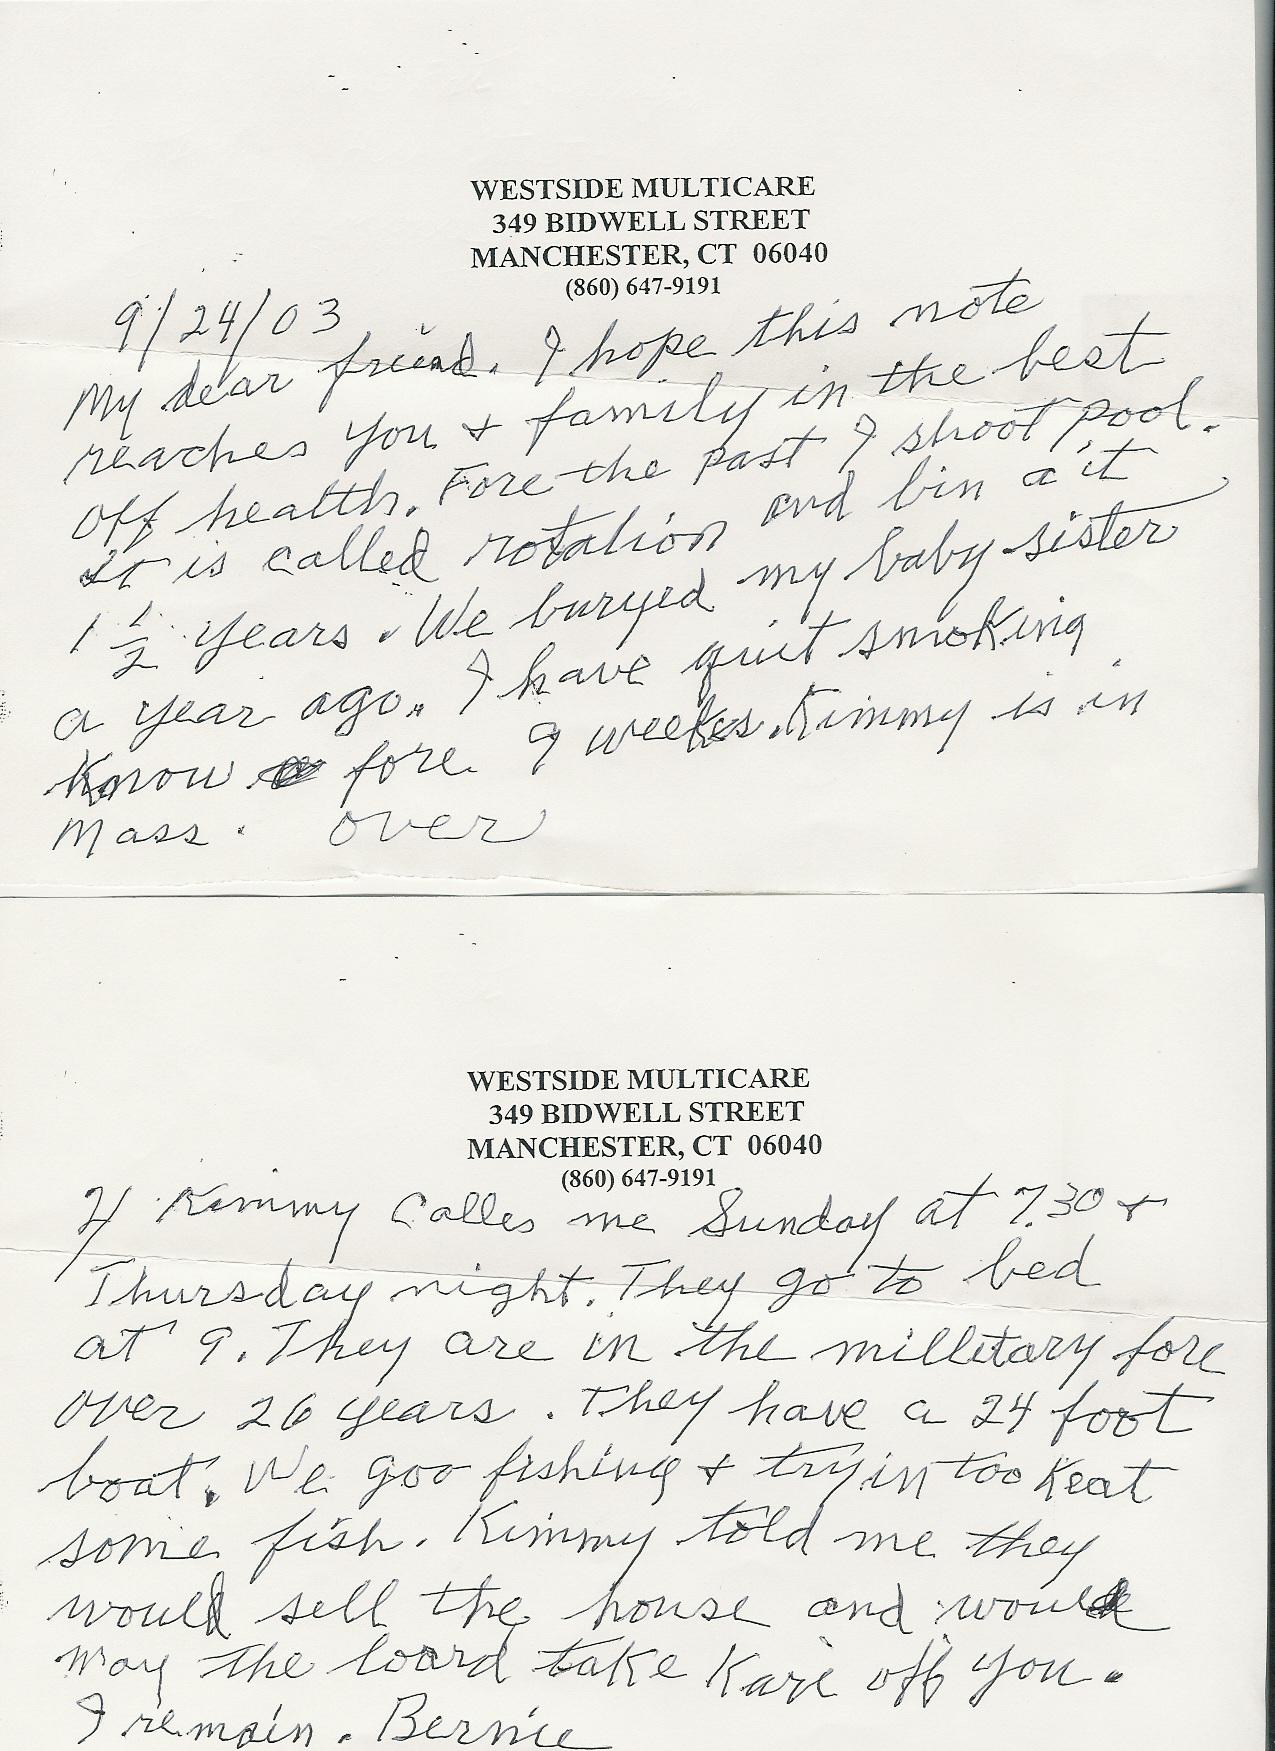 WESTSIDE MULTICARE
349 BIDWELL STREET
MANCHESTER, CT 06040
(860) 647-9191
9/24/03
My dear friend. I hope this note
reaches you & family in the best
off health. Fore the past I shoot pool.
It is called rotation and bin a it
1 1/2 years. We buryed my baby sister
a year ago. I have quit smoking
Know fore 9 weeks. Kimmy is in
Mass. over
WESTSIDE MULTICARE
349 BIDWELL STREET
MANCHESTER, CT 06040
(860) 647-9191
2/ Kimmy Calles me Sunday at 7.30 &
Thursday night. They go to bed
at 9. They are in the millitary fore
over 26 years. They have a 24 foot
boat. We goo fishing & tryin too Keat
some fish. Kimmy told me they
would sell the house and would
may the loard take Kare off you.
I remain. Bernie